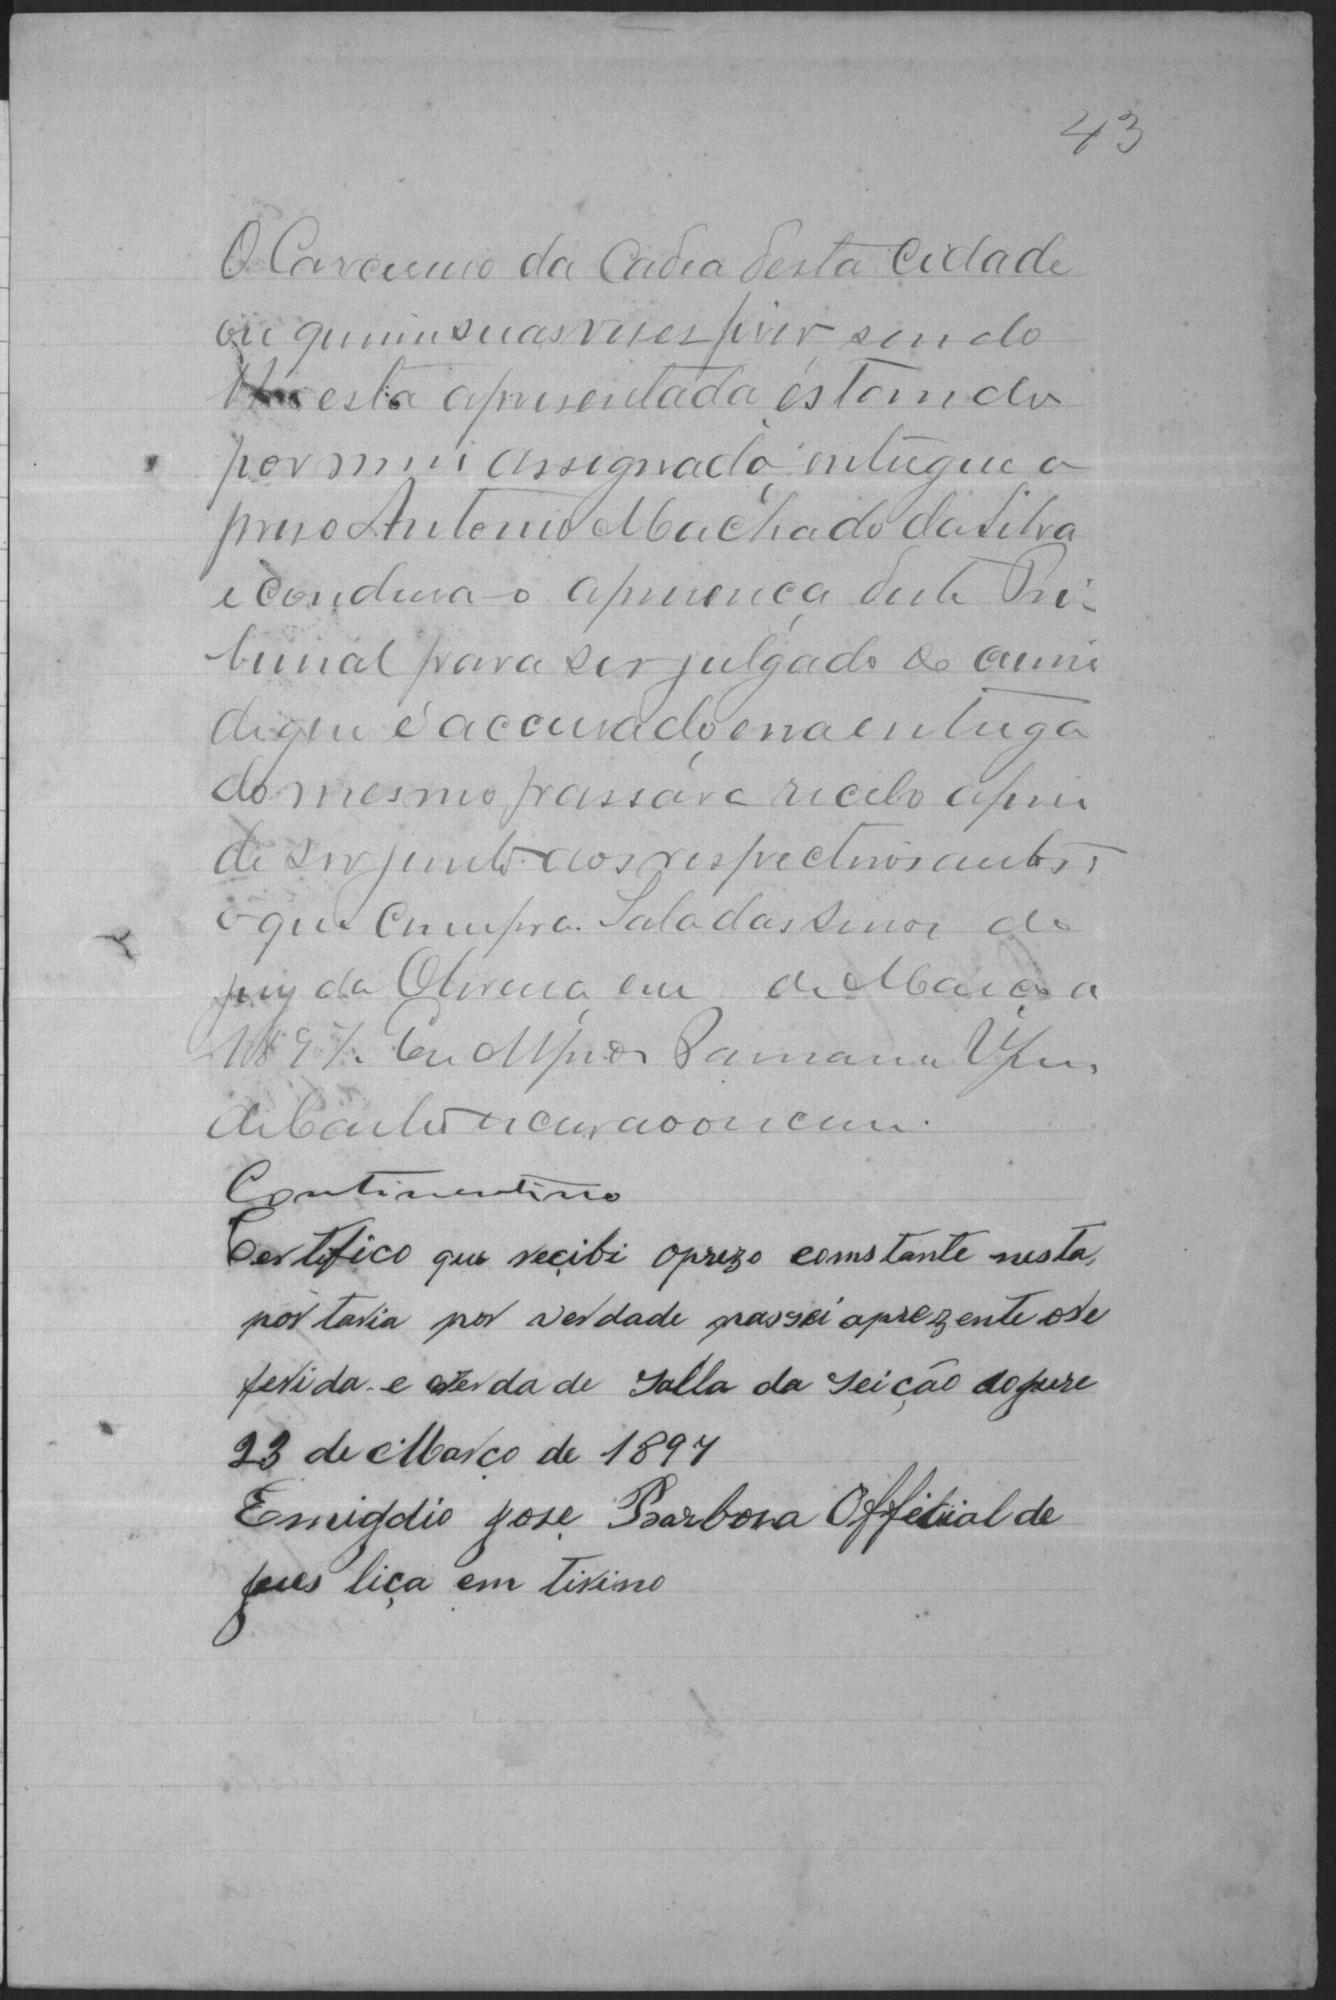 43
O Carcereiro da Cadea desta Cidade
ou quem suas veses fiser, sendo
lhe esta apresentada, estando
por mim assignado, entregue o
preso Antonio Machado da Silva
e condusa-o a presença deste Tri-
bunal para ser julgado do crime
de que é accusado, e na entrega
do mesmo passará recibo a fim
de ser junto aos respectivos autos:
o que cumpra. Sala das Sessoes do
jury da Oliveira, em de Março de
1897. Eu
de Castro escrivão o escrevi.
Continentino
Certifico que recibi oprezo comstante nesta,
portaria por verdade passei aprezente o re
ferida e verda de Salla da Seição do jure
23 de Março de 1897
Emigdio José Barbosa Official de
jus tiça em tirino